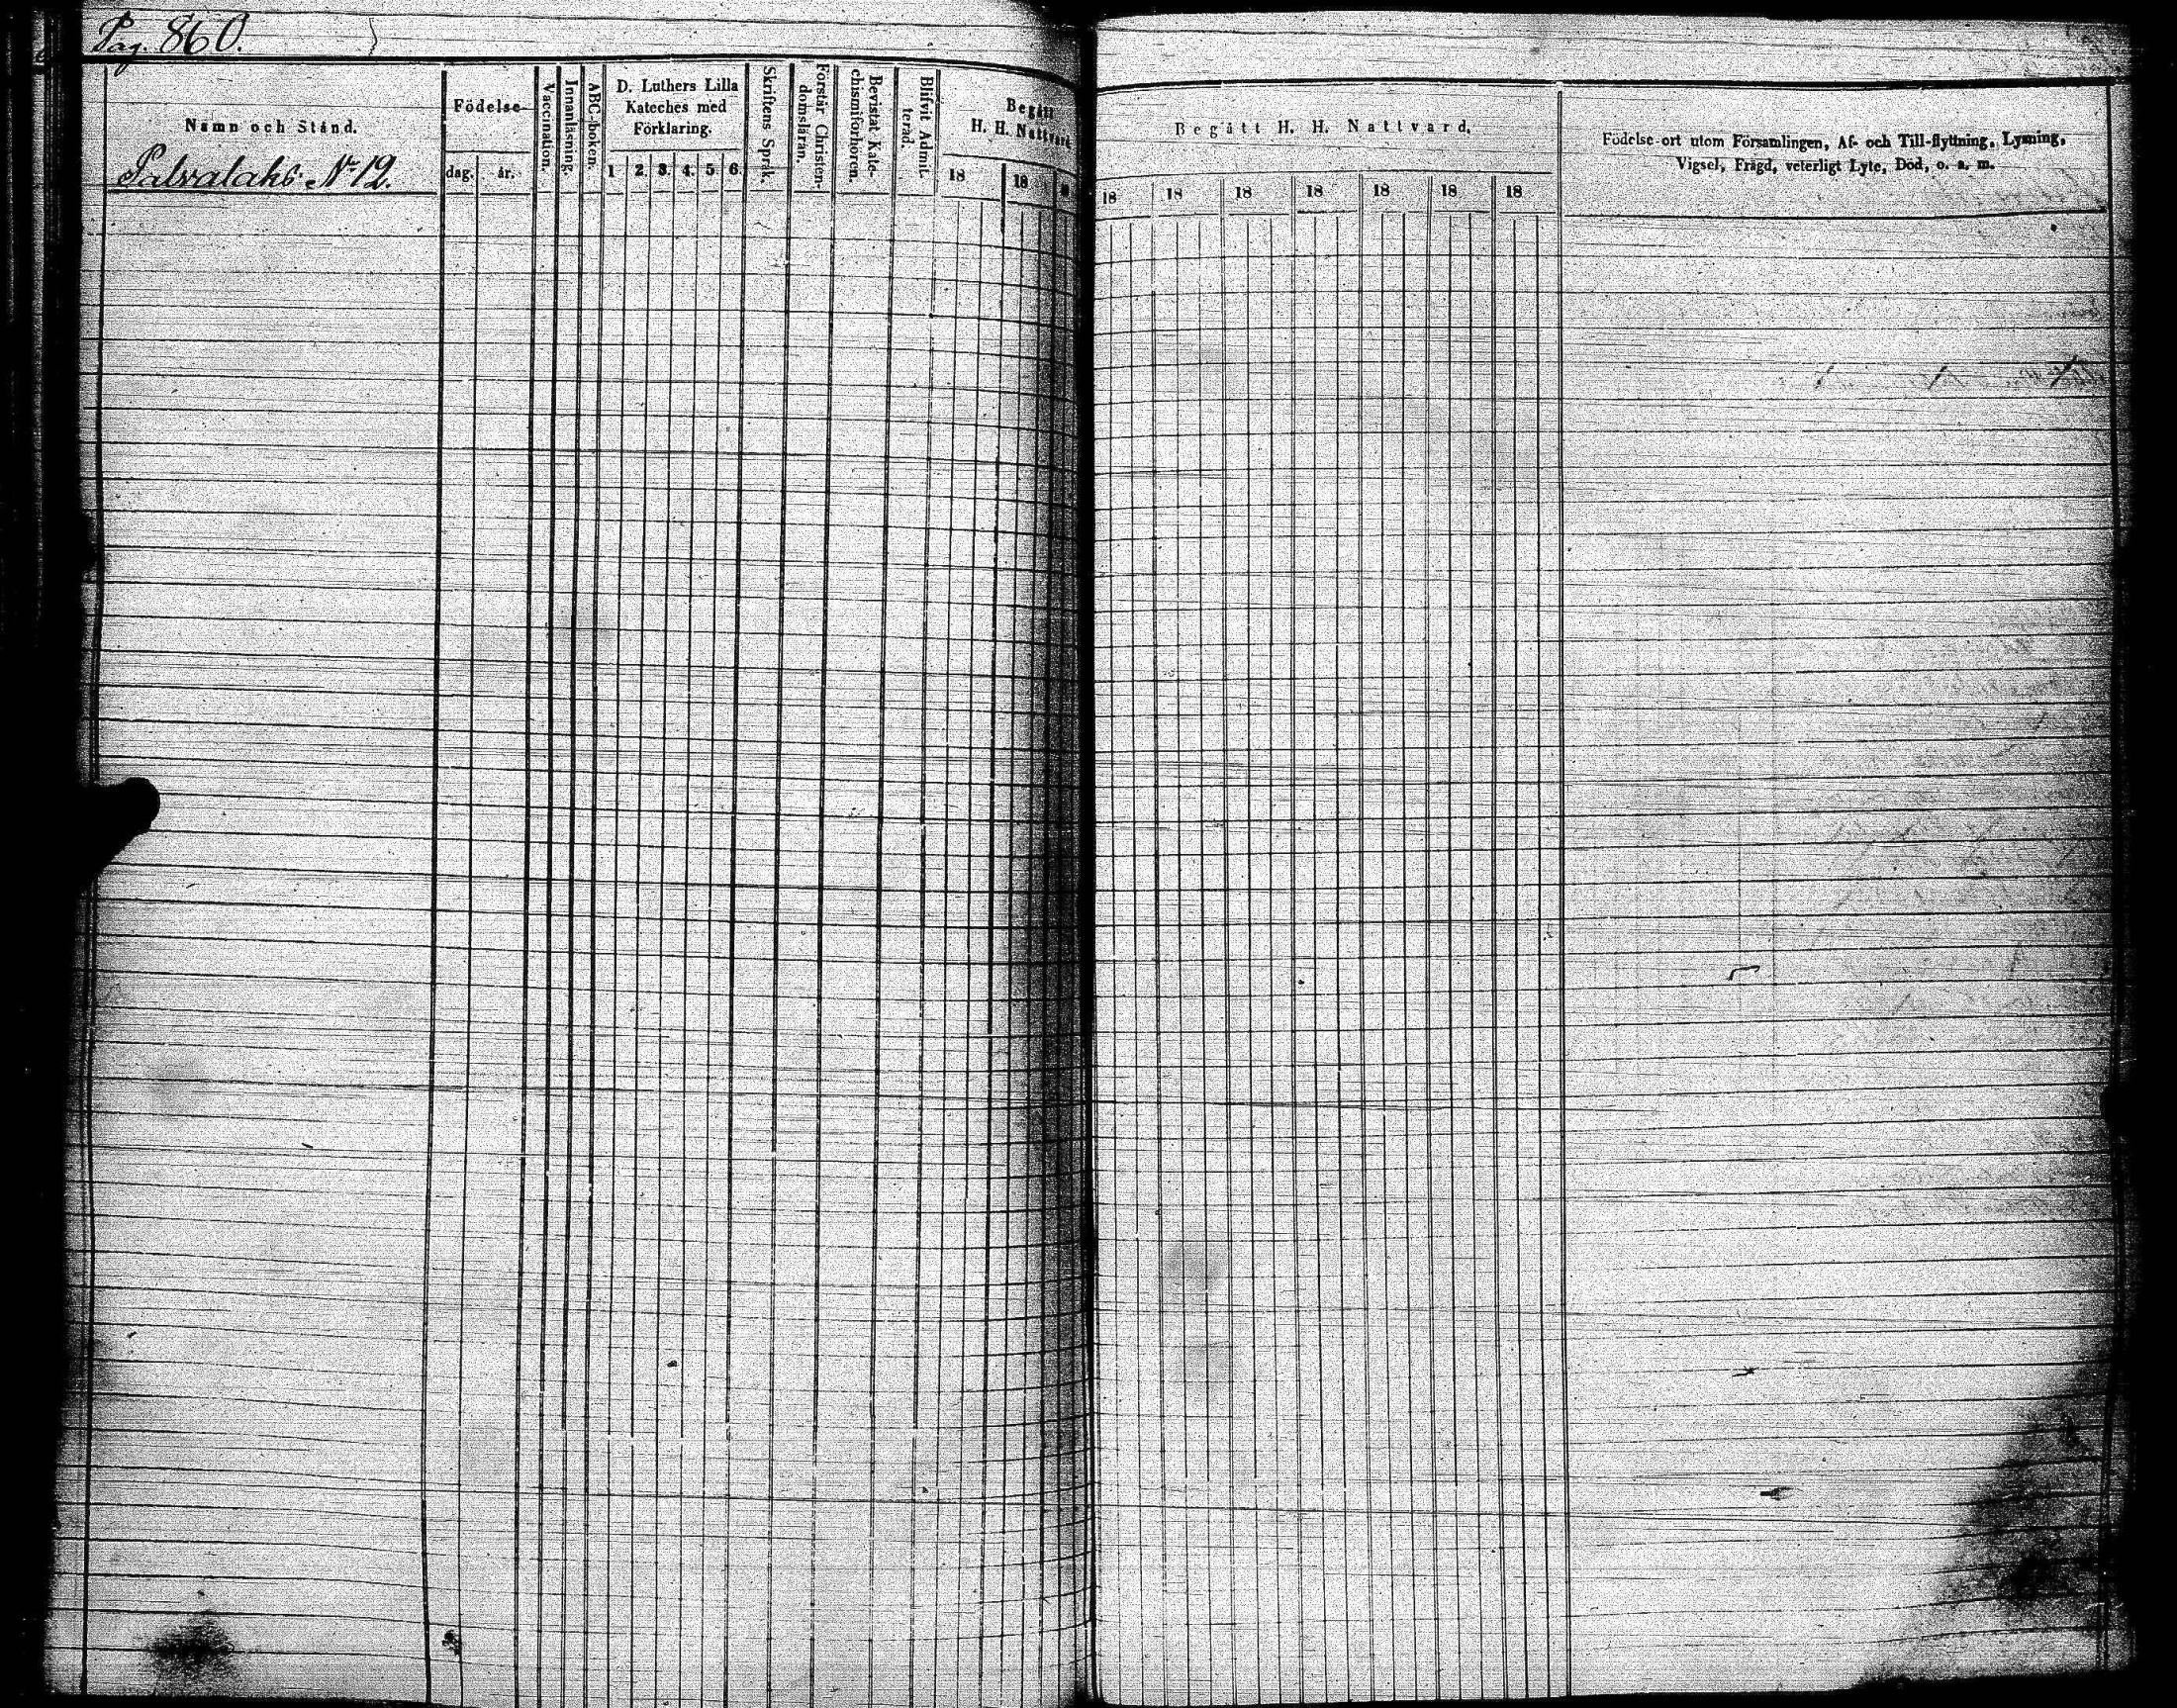 Pag. 860.
Namn och Stånd.
Palvalaks № 12.
Födelse-
dag. år.
Vaccination.
Innanläsning.
ABC-boken.
D. Luthers Lilla
Kateches med
Förklaring.
1 2. 3. 4. 5. 6.
Skriftens Språk.
Förstår Christen-
domsläran.
Bevistat Kate-
chismiförhören.
Blifvit Admit-
terad.
Begått
H. H. Nattvard.
18 18
Begått H. H. Nattvard.
18 18 18 18 18 18 18
Födelse-ort utom Församlingen, Af- och Till-flyttning, Lysning,
Vigsel, Frägd, veterligt Lyte, Död, o. s. m.